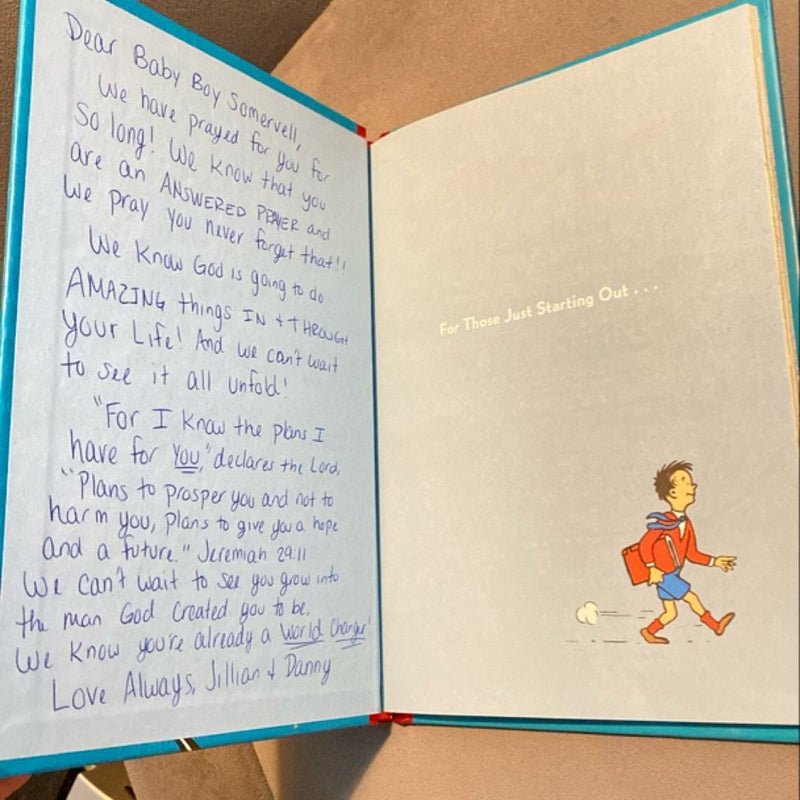 Dear Baby Boy Somervell,
We have prayed for you for
so long! We know that you
are an ANSWERED PRAYER and
we pray you never forget that!!
We know God is going to do
AMAZING things IN + THROUGH
your Life! And we can't wait
to see it all unfold!
"For I know the plans I
have for you," declares the Lord,
"Plans to prosper you and not to
harm you, plans to give you a hope
and a future." Jeremiah 29:11
We can't wait to see you grow into
the man God created you to be.
We know you're already a world changer!
Love Always, Jillian + Danny
For Those Just Starting Out . . .